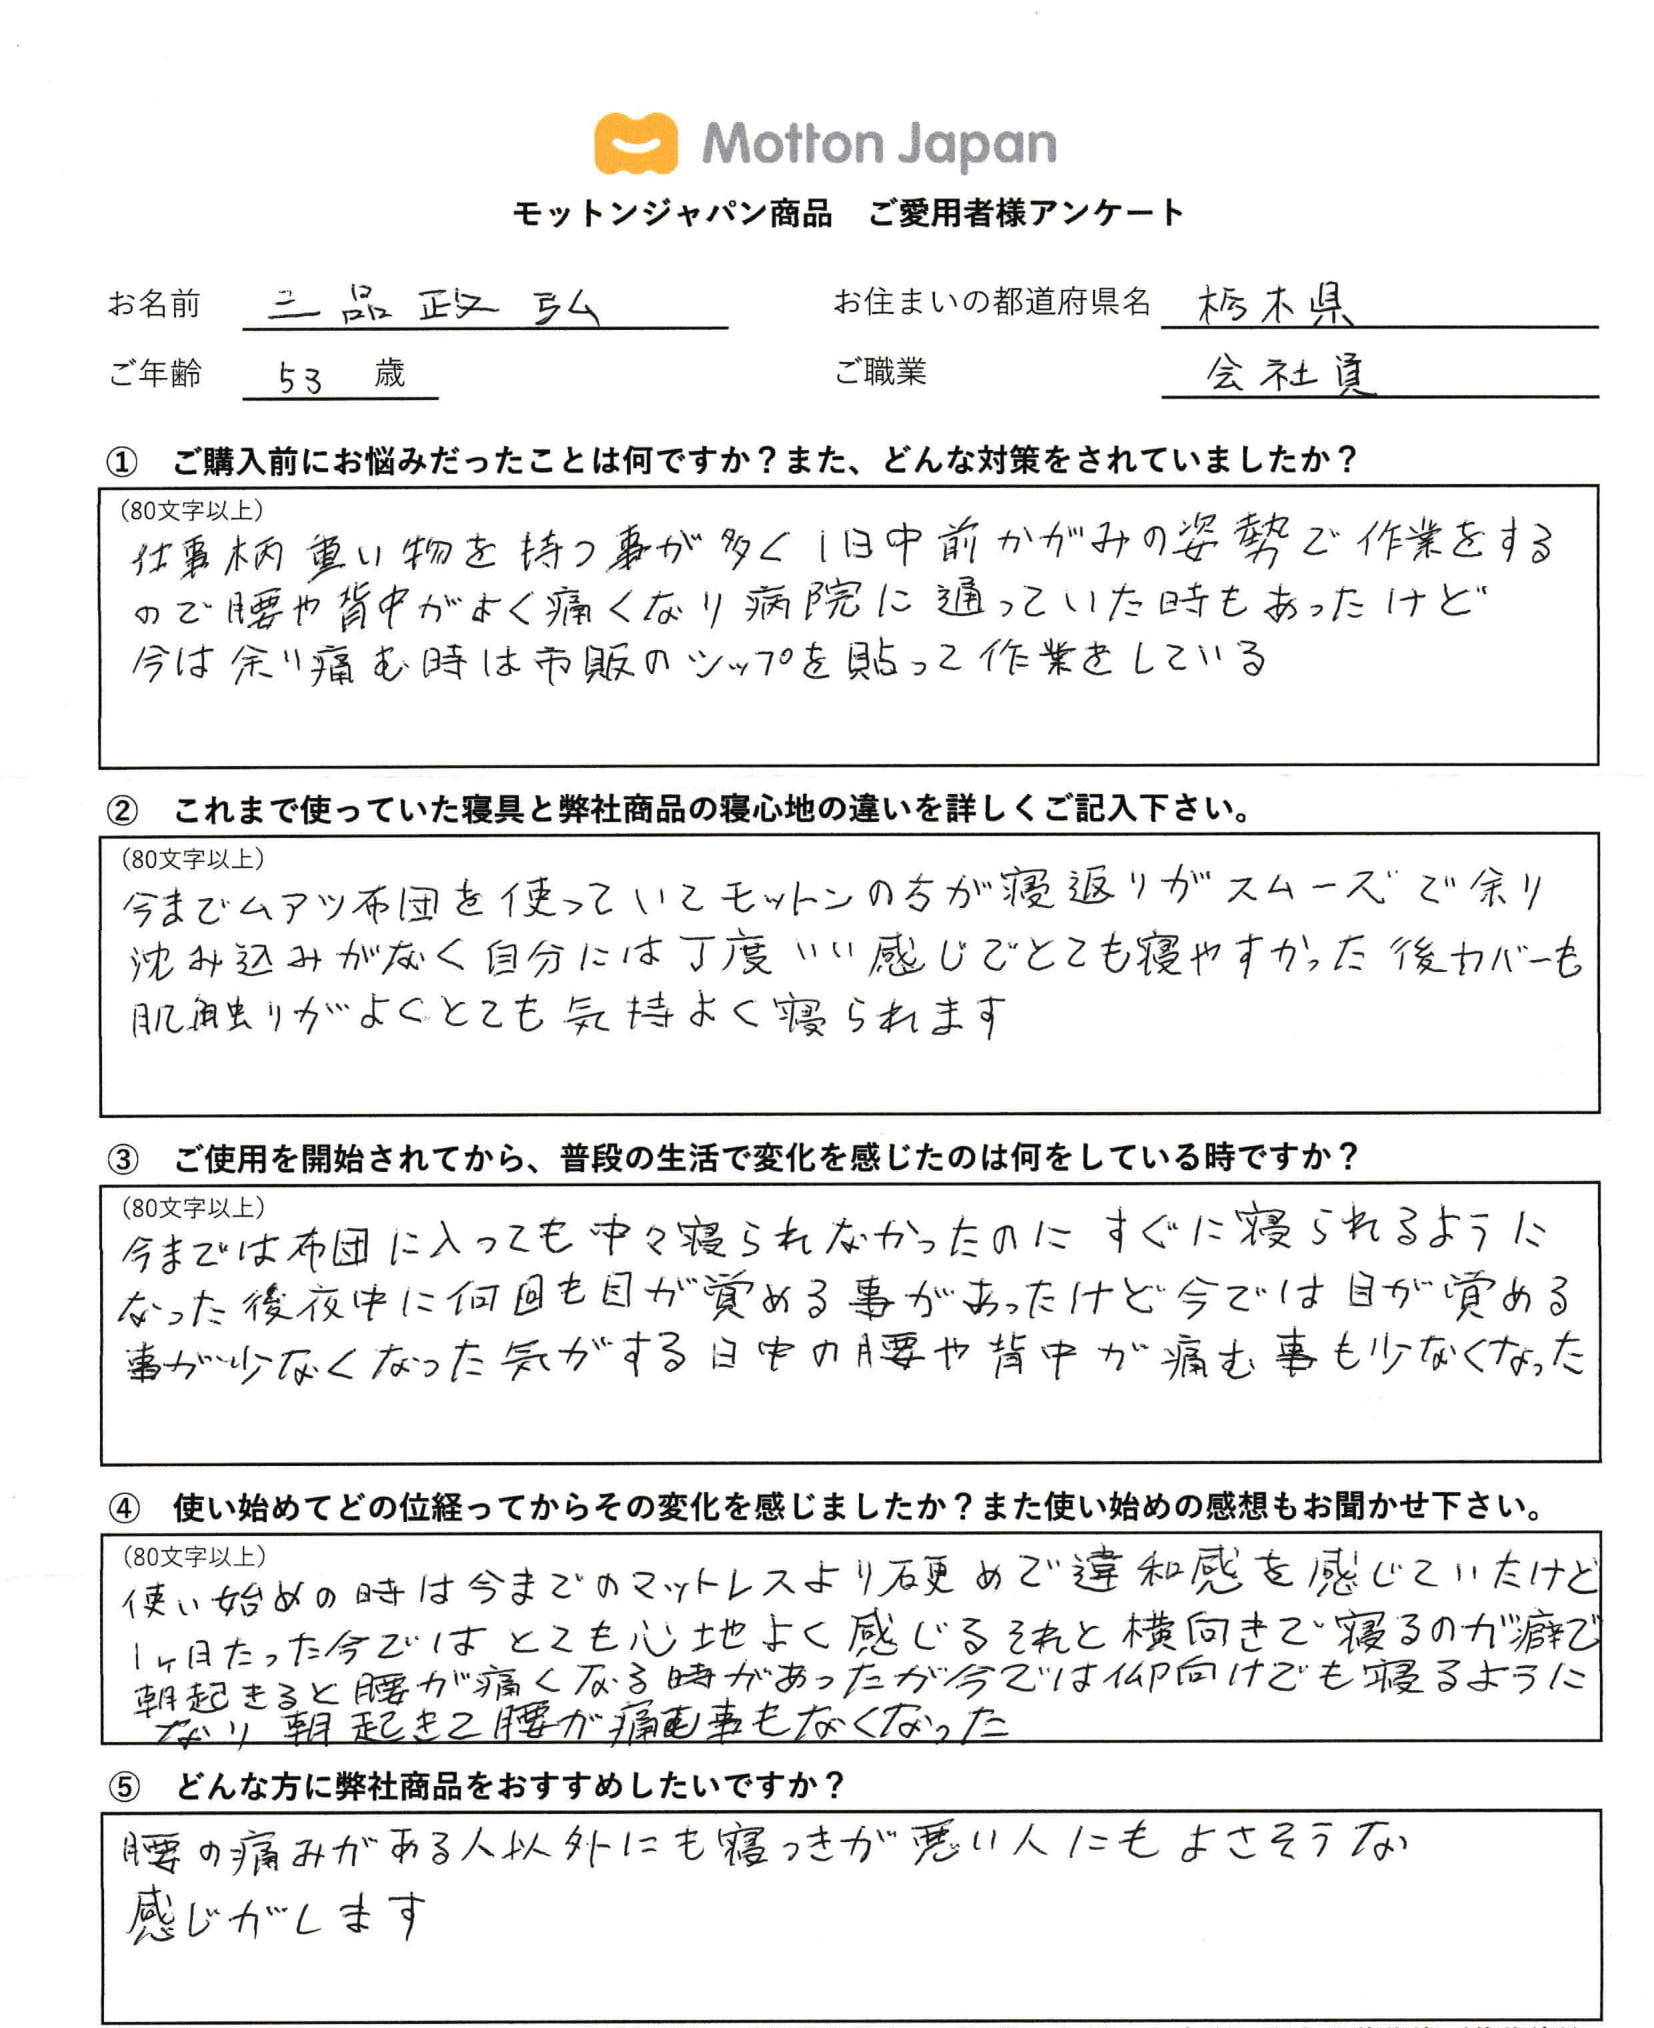 Motton Japan
モットンジャパン商品　ご愛用者様アンケート
お名前 三品 政弘 お住まいの都道府県名 栃木県
ご年齢 53 歳 ご職業 会社員
① ご購入前にお悩みだったことは何ですか？また、どんな対策をされていましたか？
(80文字以上)
仕事柄重い物を持つ事が多く1日中前かがみの姿勢で作業をする
ので腰や背中がよく痛くなり病院に通っていた時もあったけど
今は余り痛む時は市販のシップを貼って作業をしている
② これまで使っていた寝具と弊社商品の寝心地の違いを詳しくご記入下さい。
(80文字以上)
今までムアツ布団を使っていてモットンの方が寝返りがスムーズで余り
沈み込みがなく自分には丁度いい感じでとても寝やすかった後カバーも
肌触りがよくとても気持よく寝られます
③ ご使用を開始されてから、普段の生活で変化を感じたのは何をしている時ですか？
(80文字以上)
今までは布団に入っても中々寝られなかったのにすぐに寝られるように
なった後夜中に何回も目が覚める事があったけど今では目が覚める
事が少なくなった気がする日中の腰や背中が痛む事も少なくなった
④ 使い始めてどの位経ってからその変化を感じましたか？また使い始めの感想もお聞かせ下さい。
(80文字以上)
使い始めの時は今までのマットレスより硬めで違和感を感じていたけど
1ヶ月たった今ではとても心地よく感じるそれと横向きで寝るのが癖で
朝起きると腰が痛くなる時があったが今では仰向けでも寝るように
なり朝起きて腰が痛む事もなくなった
⑤ どんな方に弊社商品をおすすめしたいですか？
腰の痛みがある人以外にも寝つきが悪い人にもよさそうな
感じがします